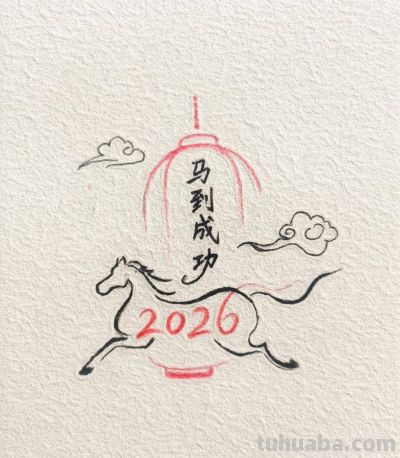 马到成功
2026
tuhuaba.com